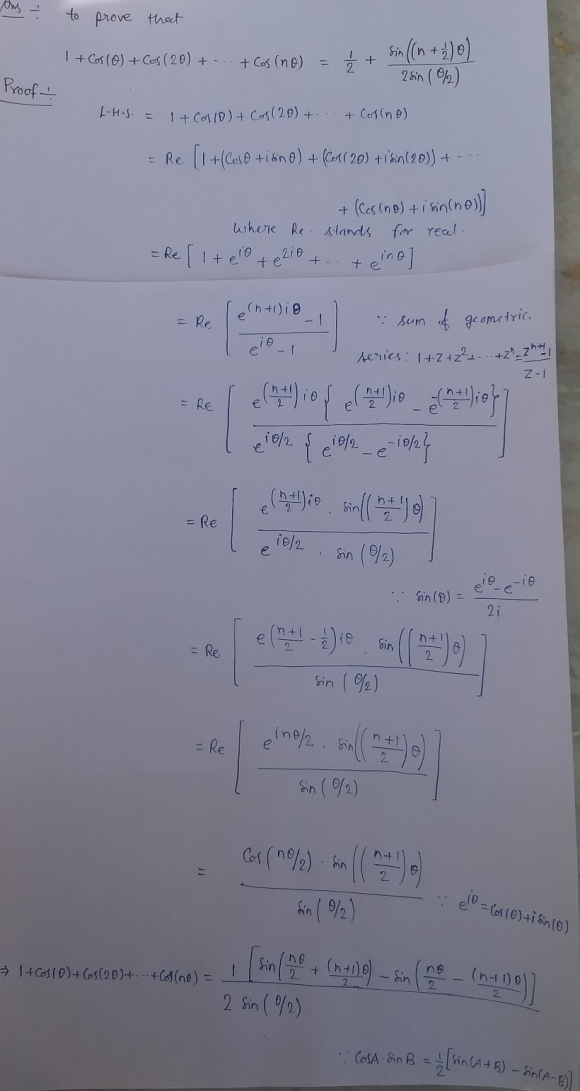 Ans ÷ to prove that
1 + Cos(θ) + Cos(2θ) + ... + Cos(nθ) = 1/2 + sin((n + 1/2)θ) / 2sin(θ/2)
Proof ÷
L.H.S. = 1 + Cos(θ) + Cos(2θ) + ... + Cos(nθ)
= Re [1 + (Cosθ + i sinθ) + (Cos(2θ) + i sin(2θ)) + ...
+ (Cos(nθ) + i sin(nθ))]
where Re. stands for real.
= Re [1 + e^{iθ} + e^{2iθ} + ... + e^{inθ}]
= Re [(e^{(n+1)iθ} - 1) / (e^{iθ} - 1)] ∵ sum of geometric.
series: 1 + z + z^2 + ... + z^n = (z^{n+1} - 1) / (z - 1)
= Re [e^{((n+1)/2)iθ} { e^{((n+1)/2)iθ} - e^{-((n+1)/2)iθ} } / e^{iθ/2} { e^{iθ/2} - e^{-iθ/2} }]
= Re [e^{((n+1)/2)iθ} . sin(((n+1)/2)θ) / e^{iθ/2} . sin(θ/2)]
∵ sin(θ) = (e^{iθ} - e^{-iθ}) / 2i
= Re [e^{((n+1)/2 - 1/2)iθ} . sin(((n+1)/2)θ) / sin(θ/2)]
= Re [e^{inθ/2} . sin(((n+1)/2)θ) / sin(θ/2)]
= Cos(nθ/2) . sin(((n+1)/2)θ) / sin(θ/2) ∵ e^{iθ} = Cos(θ) + i sin(θ)
⇒ 1 + Cos(θ) + Cos(2θ) + ... + Cos(nθ) = 1 [sin(nθ/2 + (n+1)θ/2) - sin(nθ/2 - (n+1)θ/2)] / 2 sin(θ/2)
∵ CosA . sinB = 1/2 [sin(A+B) - sin(A-B)]